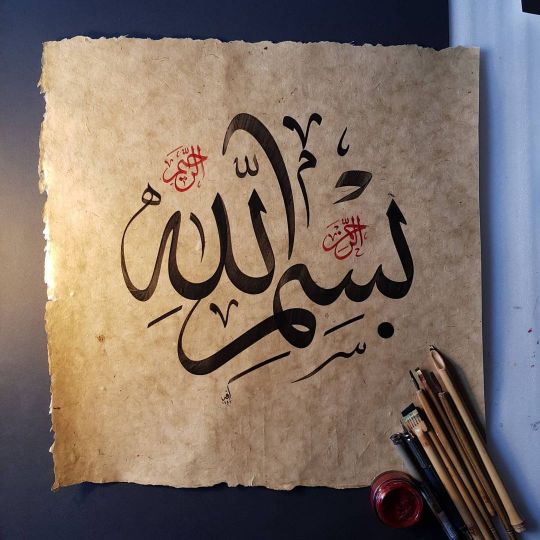 بِسْمِ اللَّهِ
الرَّحْمٰنِ
الرَّحِيْمِ